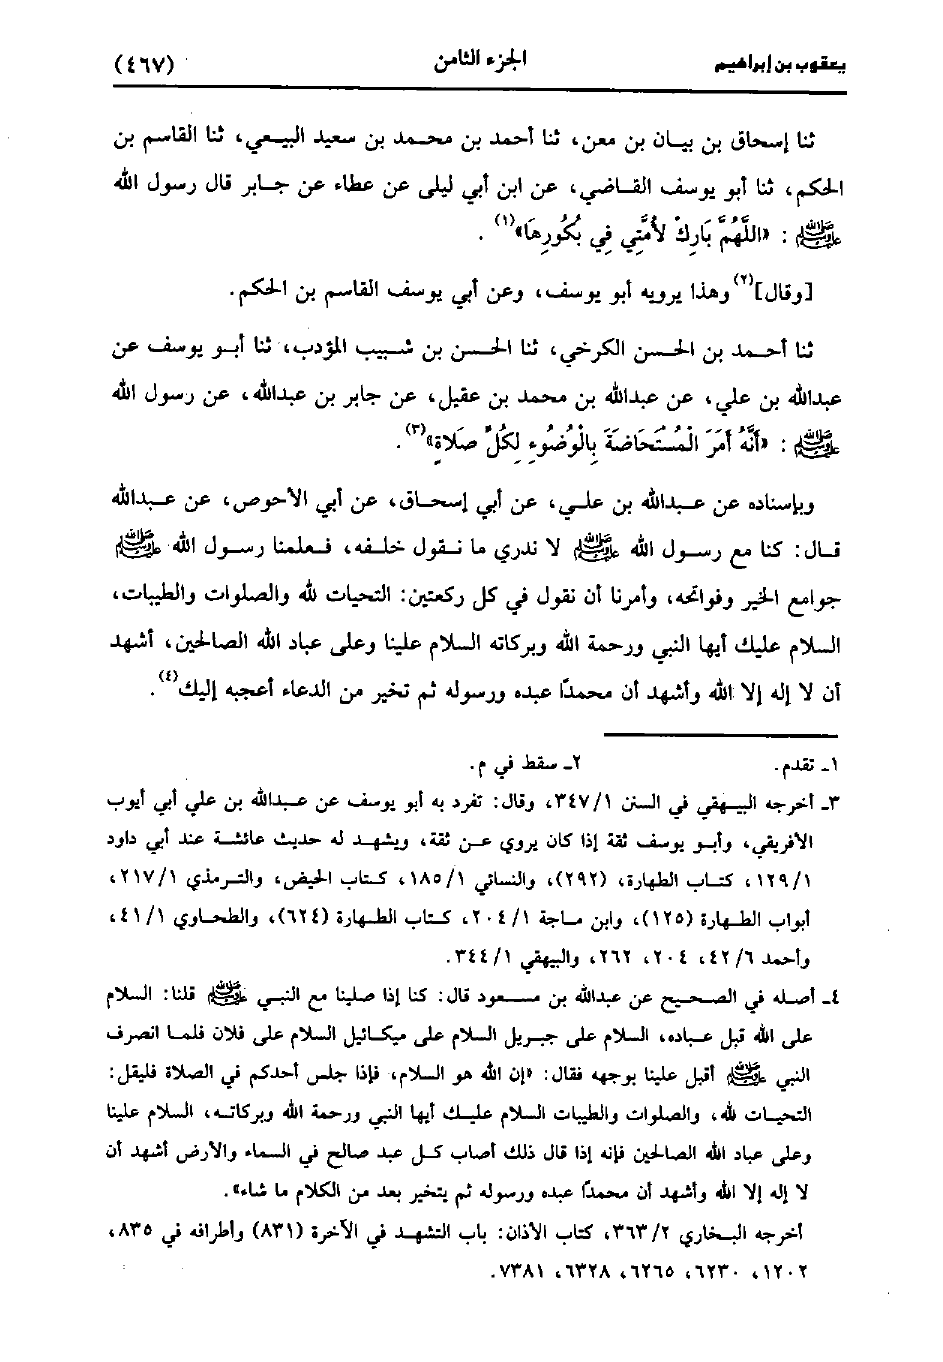 يعقوب بن إبراهيم الجزء الثامن (٤٦٧)
ثنا إسحاق بن بيان بن معن، ثنا أحمد بن محمد بن سعيد البيعي، ثنا القاسم بن
الحكم، ثنا أبو يوسف القاضي، عن ابن أبي ليلى عن عطاء عن جابر قال رسول الله
ﷺ : «اللَّهُمَّ بَارِكْ لأُمَّتِي فِي بُكُورِهَا»(١) .
[وقال](٢) وهذا يرويه أبو يوسف، وعن أبي يوسف القاسم بن الحكم.
ثنا أحمد بن الحسن الكرخي، ثنا الحسن بن شبيب المؤدب، ثنا أبو يوسف عن
عبدالله بن علي، عن عبدالله بن محمد بن عقيل، عن جابر بن عبدالله، عن رسول الله
ﷺ : «أَنَّهُ أَمَرَ الْمُسْتَحَاضَةَ بِالْوُضُوءِ لِكُلِّ صَلاَةٍ»(٣).
وبإسناده عن عبدالله بن علي، عن أبي إسحاق، عن أبي الأحوص، عن عبدالله
قال: كنا مع رسول الله ﷺ لا ندري ما نقول خلفه، فعلمنا رسول الله ﷺ
جوامع الخير وفواتحه، وأمرنا أن نقول في كل ركعتين: التحيات لله والصلوات والطيبات،
السلام عليك أيها النبي ورحمة الله وبركاته السلام علينا وعلى عباد الله الصالحين، أشهد
أن لا إله إلا الله وأشهد أن محمدًا عبده ورسوله ثم تخير من الدعاء أعجبه إليك(٤).
١ـ تقدم. ٢ـ سقط في م.
٣ـ أخرجه البيهقي في السنن ٣٤٧/١، وقال: تفرد به أبو يوسف عن عبدالله بن علي أبي أيوب
الأفريقي، وأبو يوسف ثقة إذا كان يروي عن ثقة، ويشهد له حديث عائشة عند أبي داود
١٢٩/١، كتاب الطهارة، (٢٩٢)، والنسائي ١٨٥/١، كتاب الحيض، والترمذي ٢١٧/١،
أبواب الطهارة (١٢٥)، وابن ماجة ٢٠٤/١، كتاب الطهارة (٦٢٤)، والطحاوي ٤١/١،
وأحمد ٤٢/٦، ٢٠٤، ٢٦٢، والبيهقي ٣٤٤/١.
٤ـ أصله في الصحيح عن عبدالله بن مسعود قال: كنا إذا صلينا مع النبي ﷺ قلنا: السلام
على الله قبل عباده، السلام على جبريل السلام على ميكائيل السلام على فلان فلما انصرف
النبي ﷺ أقبل علينا بوجهه فقال: «إن الله هو السلام، فإذا جلس أحدكم في الصلاة فليقل:
التحيات لله، والصلوات والطيبات السلام عليك أيها النبي ورحمة الله وبركاته، السلام علينا
وعلى عباد الله الصالحين فإنه إذا قال ذلك أصاب كل عبد صالح في السماء والأرض أشهد أن
لا إله إلا الله وأشهد أن محمدًا عبده ورسوله ثم يتخير بعد من الكلام ما شاء».
أخرجه البخاري ٣٦٣/٢، كتاب الأذان: باب التشهد في الآخرة (٨٣١) وأطرافه في ٨٣٥،
١٢٠٢، ٦٢٣٠، ٦٢٦٥، ٦٣٢٨، ٧٣٨١.